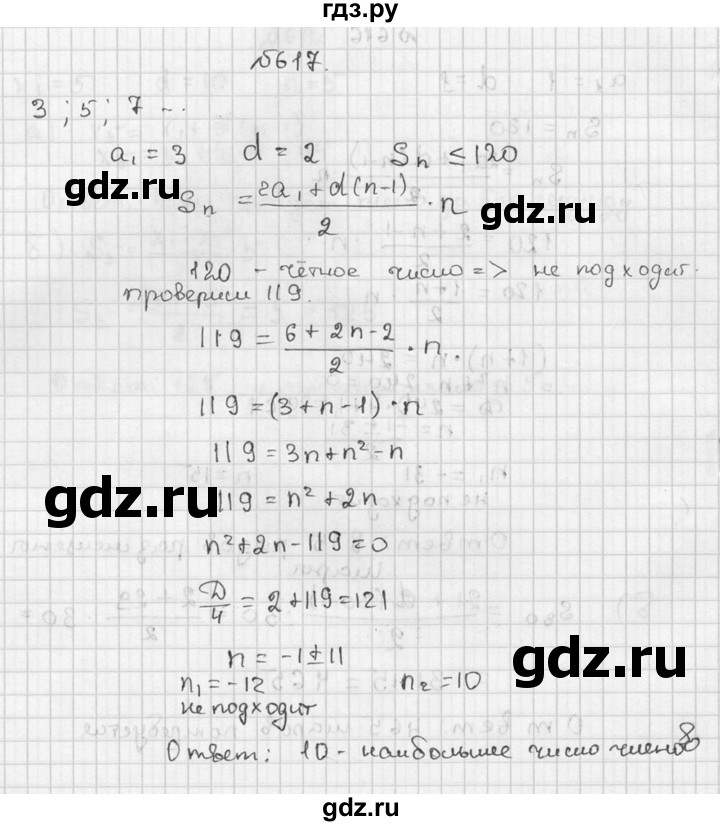 гдз.ру
№617.
3 ; 5 ; 7 ...
a₁ = 3 d = 2 Sₙ ≤ 120
gdz.ru
Sₙ = (2a₁ + d(n-1))/2 · n
gdz.ru
120 - чётное число => не подходит.
проверим 119.
119 = (6 + 2n - 2)/2 · n.
119 = (3 + n - 1) · n
119 = 3n + n² - n
gdz.ru
gdz.ru
119 = n² + 2n
n² + 2n - 119 = 0
D/4 = 2 + 119 = 121
n = -1 ± 11
gdz.ru
n₁ = -12 n₂ = 10
не подходит
Ответ: 10 - наибольшее число членов
gdz.ru